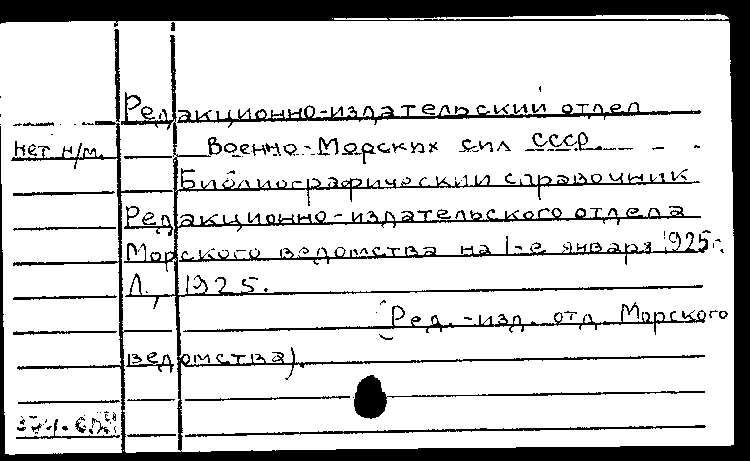 Редакционно-издательский отдел
нет н/м. Военно-Морских сил СССР.
Библиографический справочник
Редакционно-издательского отдела
Морского ведомства на 1-е января 1925г.
Л., 1925.
(Ред.-изд. отд. Морского
ведомства).